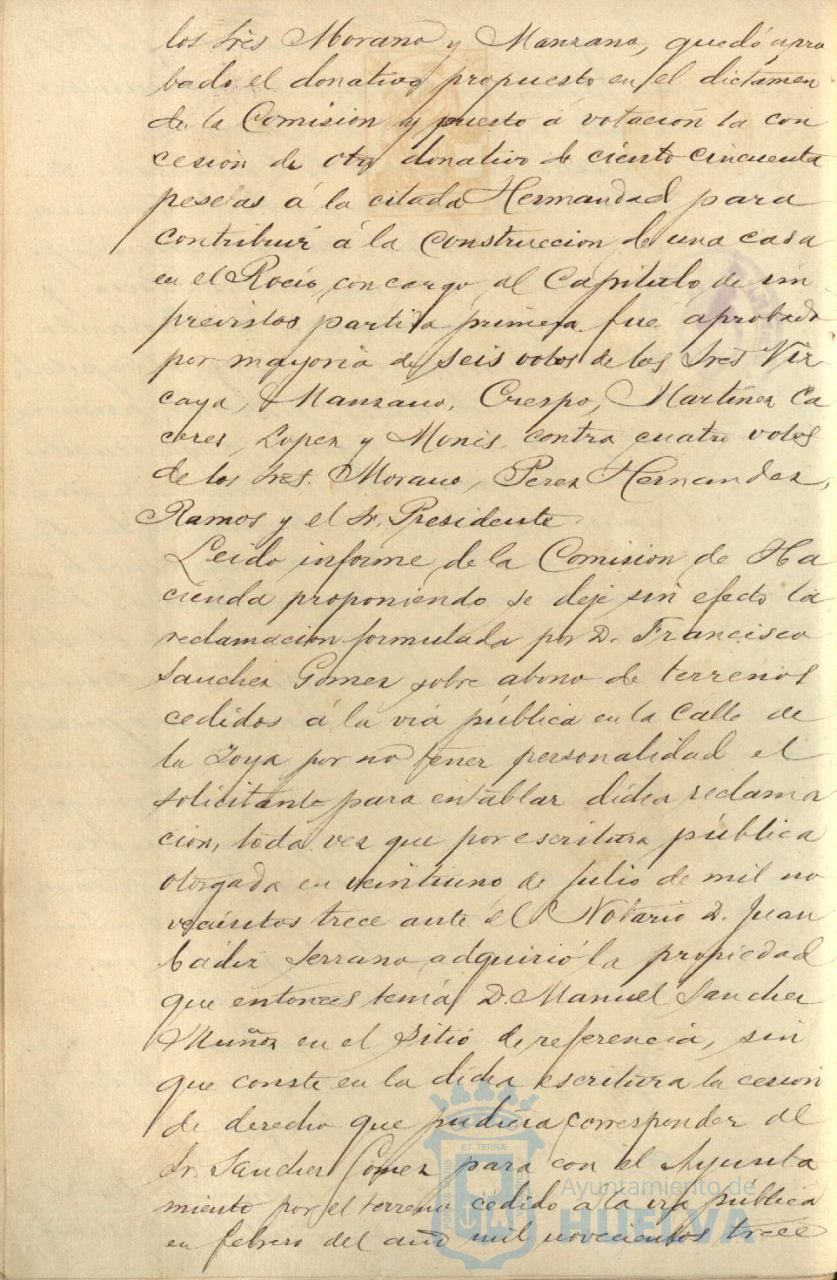 los Sres Morano y Manzano, quedó apro
bado el donativo propuesto en el dictamen
de la Comision y puesto á votación la con
cesión de otro donativo de ciento cincuenta
pesetas á la citada Hermandad para
contribuir á la construccion de una casa
en el Rocío, con cargo al Capitulo de im
previstos partida primera fué aprobado
por mayoria de seis votos de los Sres Viz
caya, Manzano, Crespo, Martinez Ca
ceres, Lopez y Monis, contra cuatro votos
de los Sres. Morano, Perez Hernandez,
Ramos y el Sr. Presidente.
Leido informe de la Comision de Ha
cienda proponiendo se deje sin efecto la
reclamación formulada por D. Francisco
Sanchez Gomez sobre abono de terrenos
cedidos á la via pública en la Calle de
la Joya por no tener personalidad el
solicitante para entablar dicha reclama
cion, toda vez que por escritura pública
otorgada en veintiuno de Julio de mil no
vecientos trece ante el Notario D. Juan
Cádiz Serrano, adquirió la propiedad
que entonces tenía D. Manuel Sanchez
Muñoz en el sitio de referencia, sin
que conste en la dicha escritura la cesion
de derecho que pudiera corresponder al
Sr. Sanchez Gomez para con el Ayunta
miento por el terreno cedido á la via publica
en febrero del año mil novecientos trece
ET TERRÆ
Ayuntamiento de
HUELVA